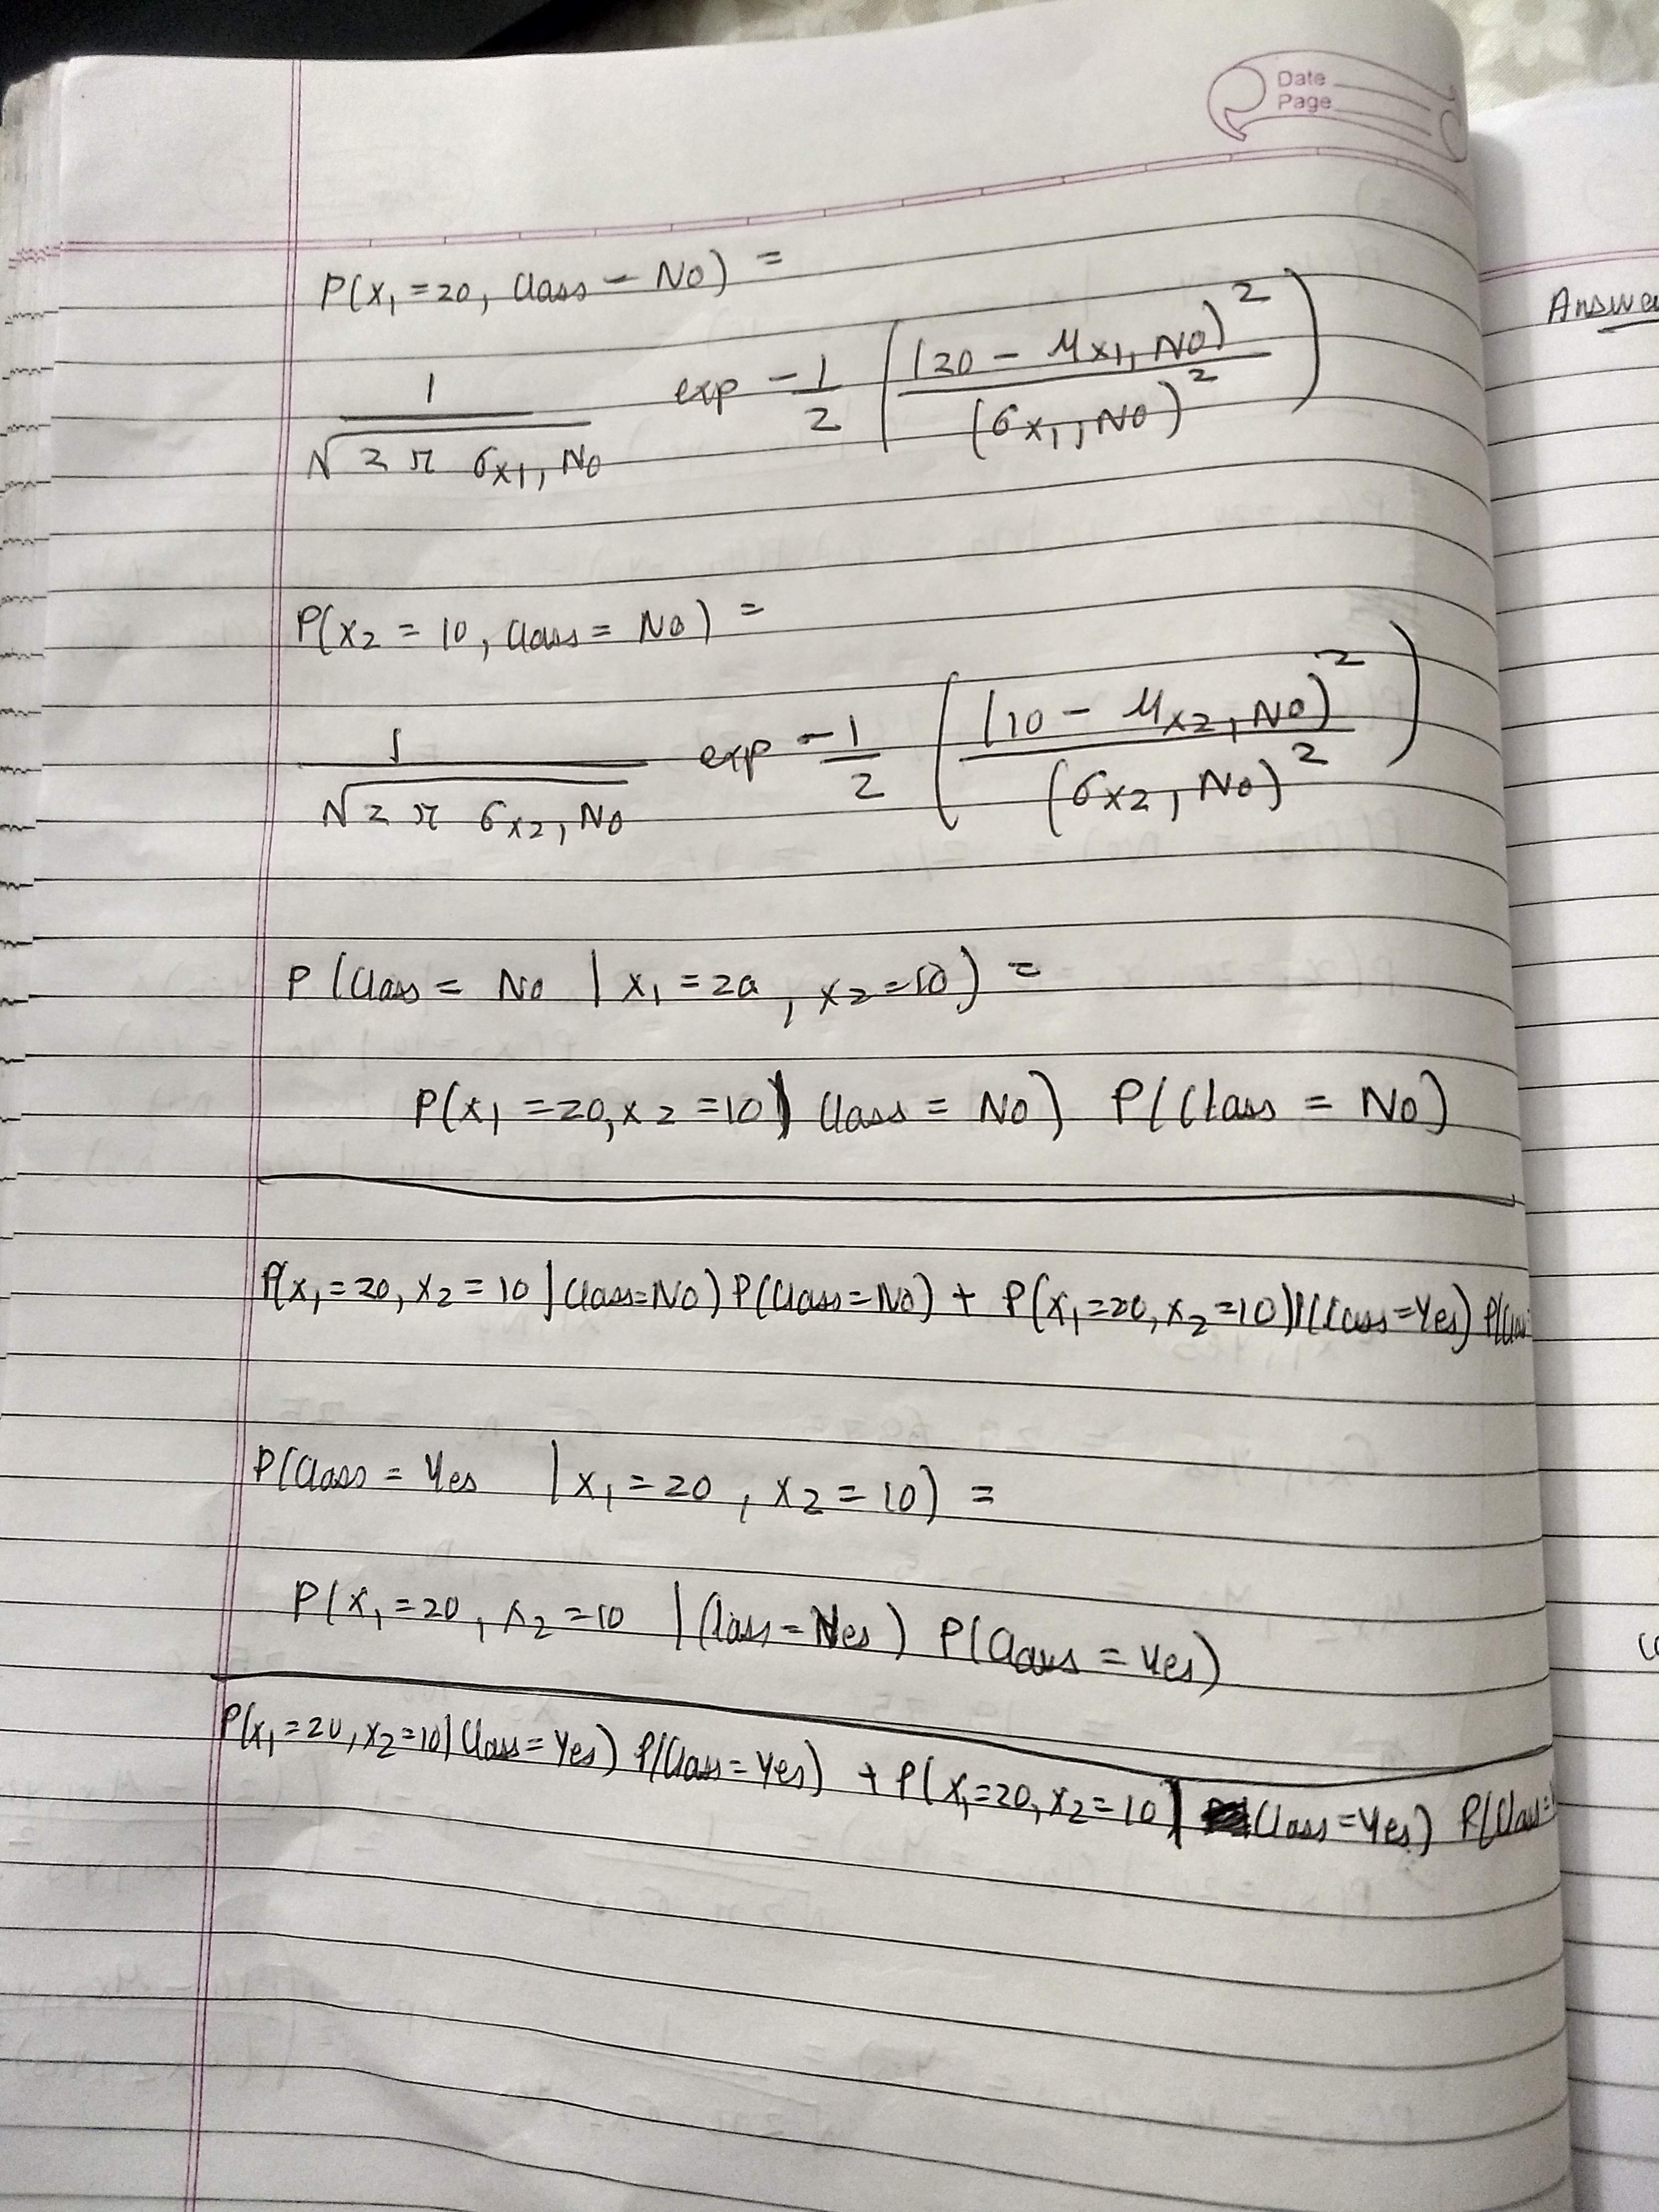 Date
Page
P(x₁ = 20, Class – No) =
1 / √2π σx₁, No exp –1/2 ((20 – μx₁, No)² / (σx₁, No)²)
P(x₂ = 10, Class = No) =
1 / √2π σx₂, No exp –1/2 ((10 – μx₂, No)² / (σx₂, No)²)
P(Class = No | x₁ = 20, x₂ = 10) =
P(x₁ = 20, x₂ = 10 | Class = No) P(Class = No)
P(x₁ = 20, x₂ = 10 | Class = No) P(Class = No) + P(x₁ = 20, x₂ = 10) P(Class = Yes) P(Clas
P(Class = Yes | x₁ = 20, x₂ = 10) =
P(x₁ = 20, x₂ = 10 | Class = Yes) P(Class = Yes)
P(x₁ = 20, x₂ = 10 | Class = Yes) P(Class = Yes) + P(x₁ = 20, x₂ = 10 | Class = Yes) P(Class =
Answe